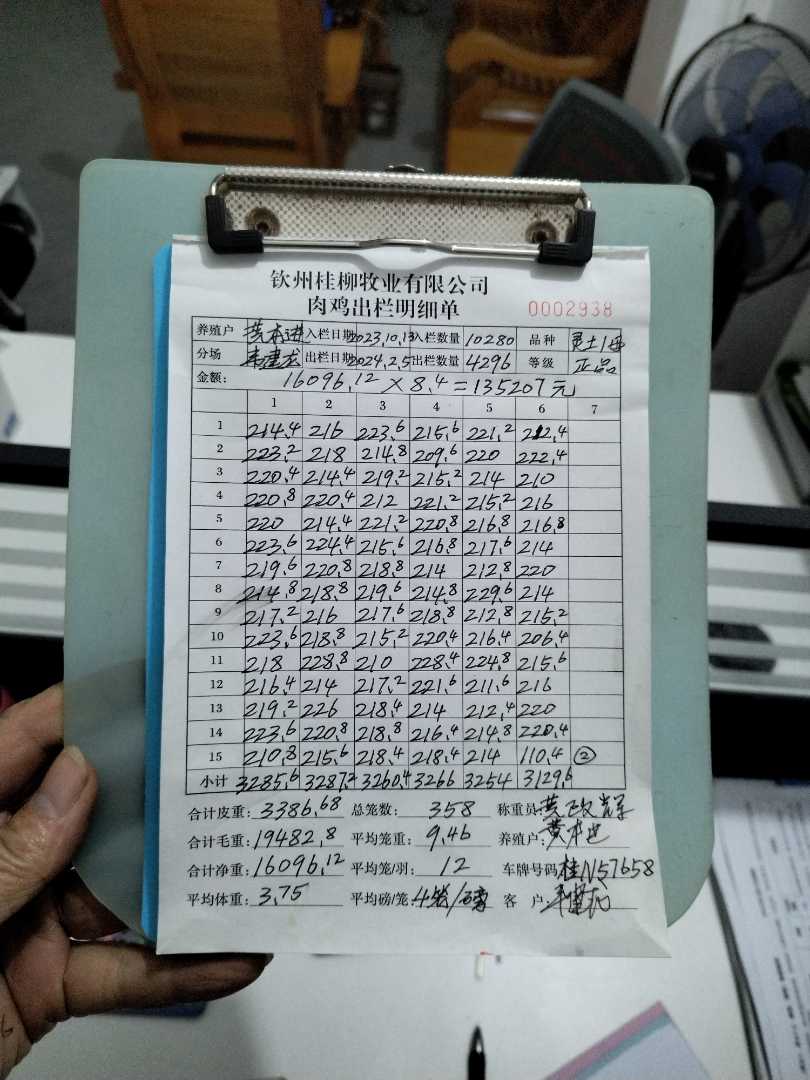 钦州桂柳牧业有限公司
肉鸡出栏明细单 0002938
养殖户 黄本进 入栏日期 2023.10.13 入栏数量 10280 品种 灵土1号
分场 出栏日期 2024.2.5 出栏数量 4296 等级 正品
金额: 16096.12 × 8.4 = 135207元
1 2 3 4 5 6 7
1 214.4 216 223.6 215.6 221.2 212.4
2 223.2 218 214.8 209.6 220 222.4
3 220.4 214.4 219.2 215.2 214 210
4 220.8 220.4 212 221.2 215.2 216
5 220 214.4 221.2 220.8 216.8 216.8
6 223.6 224.4 215.6 216.8 217.6 214
7 219.6 220.8 218.8 214 212.8 220
8 214.8 218.8 219.6 214.8 229.6 214
9 217.2 216 217.6 218.8 212.8 215.2
10 223.6 218.8 215.2 220.4 216.4 206.4
11 218 228.8 210 228.4 224.8 215.6
12 216.4 214 217.2 221.6 211.6 216
13 219.2 226 218.4 214 212.4 220
14 223.6 220.8 218.8 216.4 214.8 220.4
15 210.8 215.6 218.4 218.4 214 110.4 ②
小计 3285.6 3287.2 3260.4 3266 3254 3129.6
合计皮重: 3386.68 总笼数: 358 称重员:
合计毛重: 19482.8 平均笼重: 9.46 养殖户: 黄本进
合计净重: 16096.12 平均笼/羽: 12 车牌号码 桂N57658
平均体重: 3.75 平均磅/笼: 4笼/磅 客 户: